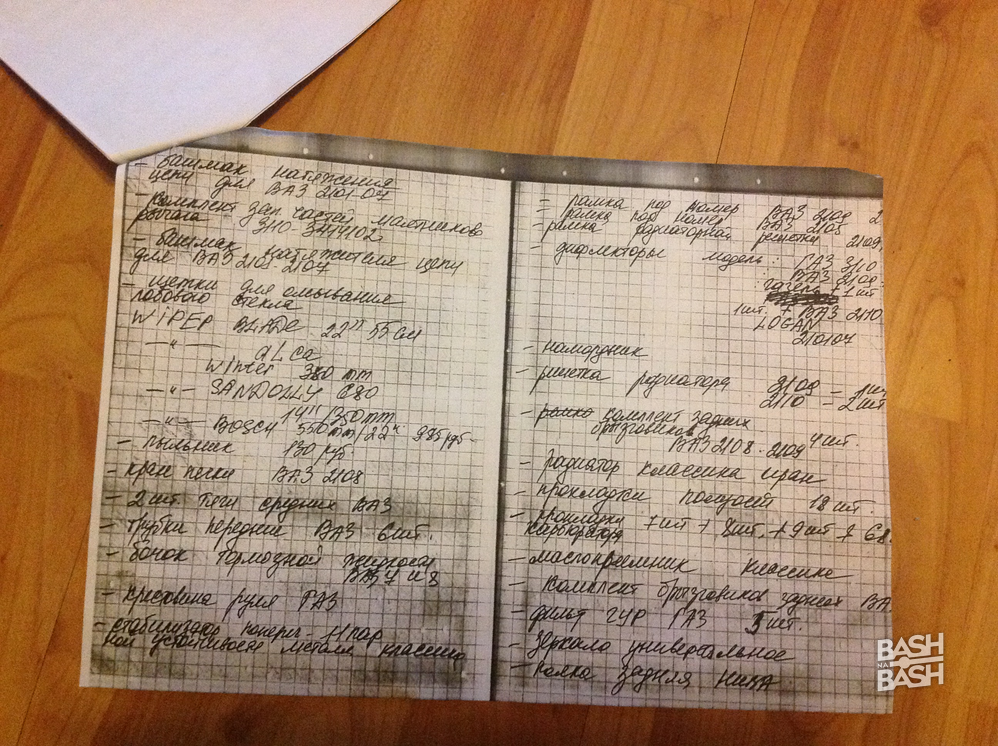 - башмак натяжения
цепи для ВАЗ 2101-07
- комплект зап частей маятникового
рычага 3110
- башмак натяжителя цепи
для ВАЗ 2101-2107
- щетки для омывания
лобового стекла
WIPEP BLADE 22" 55 см
-"- aLca
winter 380 mm
-"- SANDOLLY 280
14"/350mm
-"- BOSCH 550mm/22" 985 руб-
- пыльник 130 руб.
- кран печки ВАЗ 2108
- 2 шт. тяги средних ВАЗ
- трубки передние ВАЗ 6 шт.
- бочок тормозной жидкости
ВАЗ 7 и 8
- крестовина руля ГАЗ
- стабилизатор попереч- 11 пар
ной устойчивости металл классика
- рамка под номер ВАЗ 2109 2
- рамка под номер ВАЗ 2105
- рамка радиаторная решетки 2109.
- дифлекторы модель: ГАЗ 3110
: ВАЗ 2109-
: газель - 1 шт
1 шт. + ВАЗ 2110
LOGAN
210104
- намордник
- решетка радиатора 2109 - 1 шт
2110 - 2 шт
- комплект задних
брызговиков 4 шт.
ВАЗ 2108-2109
- радиатор классика иран
- прокладки 18 шт.
- прокладки 7 шт + 8 шт. + 9 шт + 68.
карбюратора
- маслоприемник классика
- комплект брызговиков задних ВА
- фильт ГУР ГАЗ 5 шт.
- зеркало универсальное
- полка задняя НИВА
BASH
НА
BASH